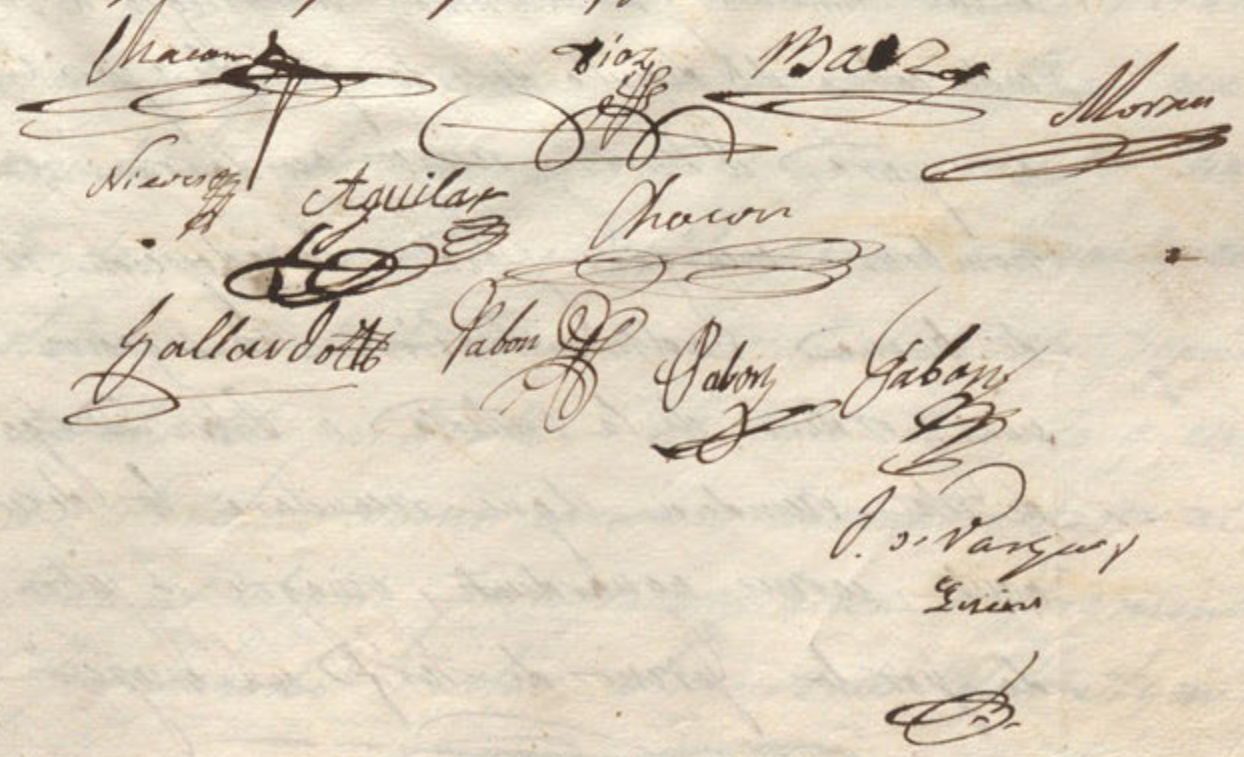 Chacon Dioz Baez Moran
Nieves Aguilar Chacon
Gallardo Pabon Pabon Pabon
J. de Vasquez